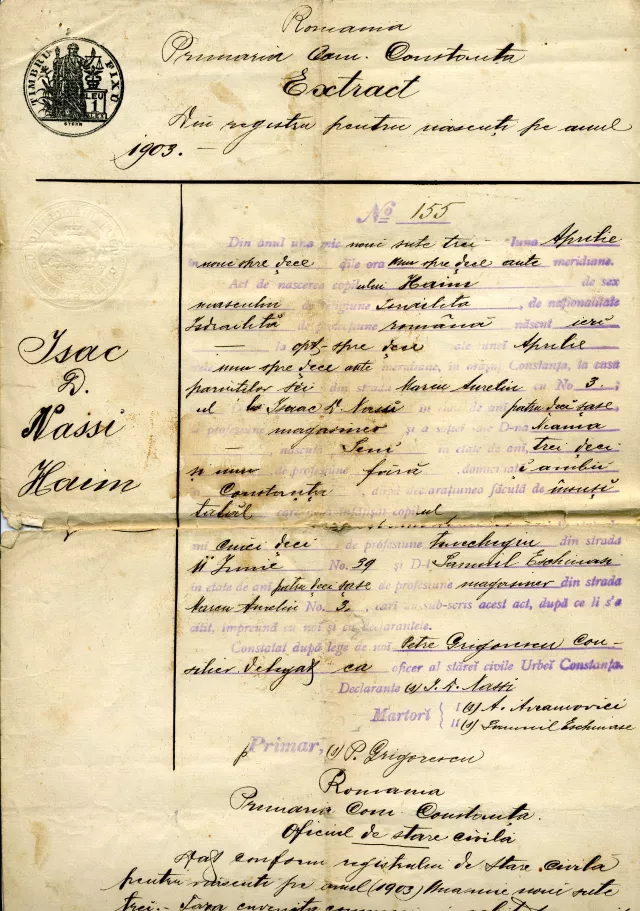 Romania
Primaria Com. Constanta
Extract
Din registru pentru nascuți pe anul
1903. —
TIMBRU FIXU
LEU
1
No 155
Din anul una mie noui sute trei luna Aprilie
in noui spre dece dile ora unu spre dece ante meridiane.
Act de nascerea copilului Haim de sex
masculin de religiune Israelita, de naționalitate
Isdraelită de protecțiune română născut ieri
la opt-spre dece ale lunei Aprilie
orele unu spre dece ante meridiane, in orașul Constanța, la casa
parintilor sĕi din strada Marcu Aureliu cu No 3,
ul Isaac D. Nassi in etate de ani patru deci șase
de profesiune magasiner și a soției sale D-na Neama
— născută Seni in etate de ani, trei deci
și unu de profesiune fară domiciliați ambii
Constanța, după declarațiunea făcută de însuși
tatăl care ne-a înfățișat copilul
mi cinci deci de profesiune din strada
11 Iunie No. 39 și D-l Samuil Eschinasi
in etate de ani patru deci șase de profesiune magasiner din strada
Marcu Aureliu No. 3, cari au sub-scris acest act, după ce li s'a
citit, împreună cu noi și cu declarantele.
Constatat după lege de noi Petre Grigorescu Con-
silier delegat ca oficer al stărei civile Urbei Constanța.
Declarante (s) I. D. Nassi
Martorĭ I (s) A. Avramovici
II (s) Samuil Eschinase
p Primar, (s) P. Grigorescu
Isac
D.
Nassi
Haim
Romania
Primaria Com Constanța.
Oficiul de stare civilă
Dat conform registrului de stare civila
pentru nascuti pe anul (1903) Una mie noui sute
trei. — Taxa